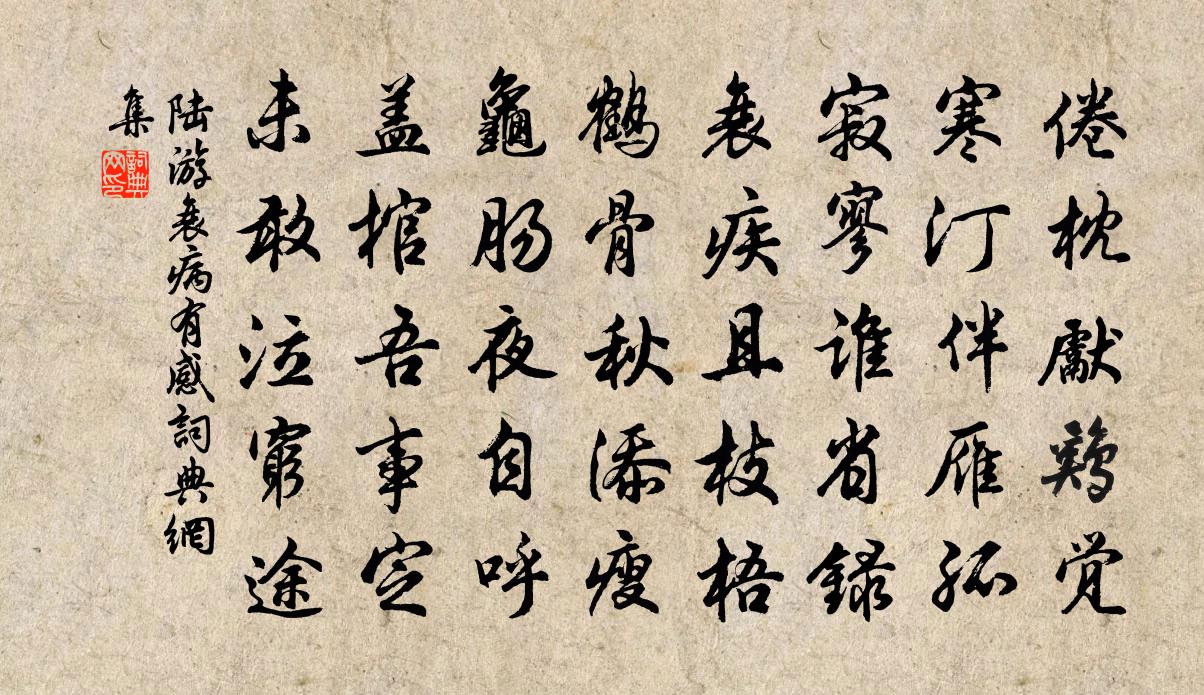 倦枕獻鷄觉
寒汀伴雁孤
寂寥誰省録
衰疾且枝梧
鶴骨秋添瘦
龜肠夜自呼
盖棺吾事定
未敢泣窮途
陆游衰病有感詞典網
集
詞典网印